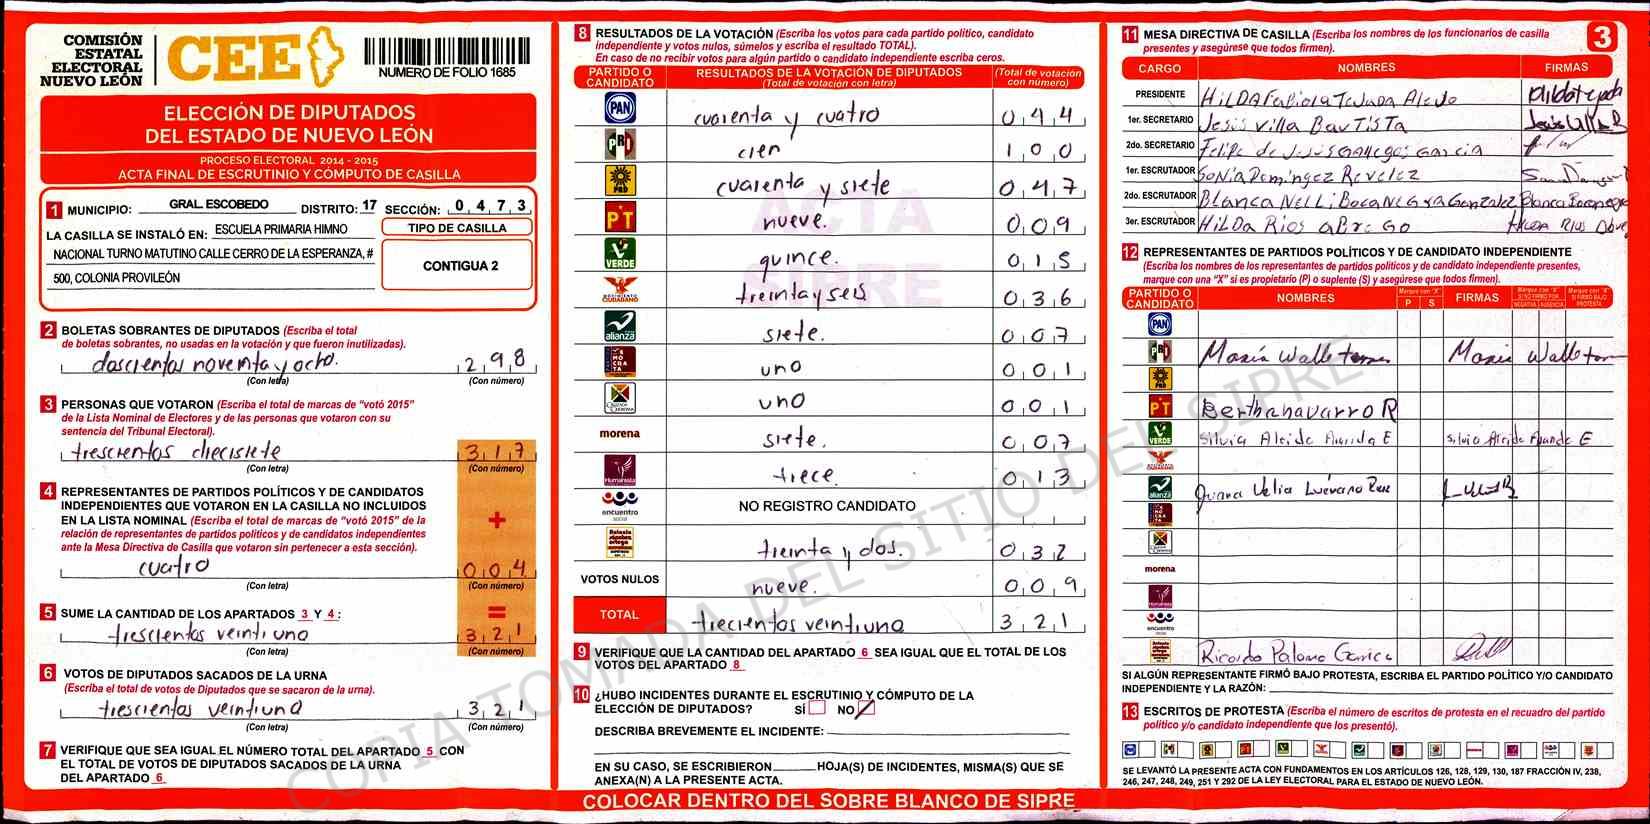 COMISIÓN
ESTATAL
ELECTORAL
NUEVO LEÓN
CEE
NUMERO DE FOLIO 1685
ELECCIÓN DE DIPUTADOS
DEL ESTADO DE NUEVO LEÓN
PROCESO ELECTORAL 2014 - 2015
ACTA FINAL DE ESCRUTINIO Y CÓMPUTO DE CASILLA
1 MUNICIPIO: GRAL. ESCOBEDO DISTRITO: 17 SECCIÓN: 0 4 7 3
LA CASILLA SE INSTALÓ EN: ESCUELA PRIMARIA HIMNO
NACIONAL TURNO MATUTINO CALLE CERRO DE LA ESPERANZA, #
500, COLONIA PROVILEÓN
TIPO DE CASILLA
CONTIGUA 2
2 BOLETAS SOBRANTES DE DIPUTADOS (Escriba el total
de boletas sobrantes, no usadas en la votación y que fueron inutilizadas).
doscientos noventa y ocho. 2 9 8
(Con letra) (Con número)
3 PERSONAS QUE VOTARON (Escriba el total de marcas de "votó 2015"
de la Lista Nominal de Electores y de las personas que votaron con su
sentencia del Tribunal Electoral).
trescientos diecisiete 3 1 7
(Con letra) (Con número)
4 REPRESENTANTES DE PARTIDOS POLÍTICOS Y DE CANDIDATOS
INDEPENDIENTES QUE VOTARON EN LA CASILLA NO INCLUIDOS
EN LA LISTA NOMINAL (Escriba el total de marcas de "votó 2015" de la
relación de representantes de partidos políticos y de candidatos independientes
ante la Mesa Directiva de Casilla que votaron sin pertenecer a esta sección).
+
cuatro 0 0 4
(Con letra) (Con número)
=
5 SUME LA CANTIDAD DE LOS APARTADOS 3 Y 4 :
trescientos veinti uno 3 2 1
(Con letra) (Con número)
6 VOTOS DE DIPUTADOS SACADOS DE LA URNA
(Escriba el total de votos de Diputados que se sacaron de la urna).
trescientos veintiuno 3 2 1
(Con letra) (Con número)
7 VERIFIQUE QUE SEA IGUAL EL NÚMERO TOTAL DEL APARTADO 5 CON
EL TOTAL DE VOTOS DE DIPUTADOS SACADOS DE LA URNA
DEL APARTADO 6
8 RESULTADOS DE LA VOTACIÓN (Escriba los votos para cada partido político, candidato
independiente y votos nulos, súmelos y escriba el resultado TOTAL).
En caso de no recibir votos para algún partido o candidato independiente escriba ceros.
PARTIDO O CANDIDATO
RESULTADOS DE LA VOTACIÓN DE DIPUTADOS
(Total de votación con letra)
(Total de votación con número)
PAN cuarenta y cuatro 0 4 4
PRI cien 1 0 0
PRD cuarenta y siete 0 4 7
PT nueve. 0 0 9
VERDE quince. 0 1 5
MOVIMIENTO CIUDADANO treinta y seis 0 3 6
alianza siete. 0 0 7
DEMOCRATA uno 0 0 1
CRUZADA CIUDADANA uno 0 0 1
morena siete. 0 0 7
Humanista trece. 0 1 3
encuentro social NO REGISTRO CANDIDATO
treinta y dos. 0 3 2
VOTOS NULOS nueve. 0 0 9
TOTAL trecientos veintiuno 3 2 1
ACTA
SIPRE
9 VERIFIQUE QUE LA CANTIDAD DEL APARTADO 6 SEA IGUAL QUE EL TOTAL DE LOS
VOTOS DEL APARTADO 8
10 ¿HUBO INCIDENTES DURANTE EL ESCRUTINIO Y CÓMPUTO DE LA
ELECCIÓN DE DIPUTADOS? SÍ NO
DESCRIBA BREVEMENTE EL INCIDENTE:
EN SU CASO, SE ESCRIBIERON HOJA(S) DE INCIDENTES, MISMA(S) QUE SE
ANEXA(N) A LA PRESENTE ACTA.
11 MESA DIRECTIVA DE CASILLA (Escriba los nombres de los funcionarios de casilla
presentes y asegúrese que todos firmen).
3
CARGO NOMBRES FIRMAS
PRESIDENTE HiLDA Fabiola Tejada
1er. SECRETARIO Jesús Villa BauTiSTa
2do. SECRETARIO Felipe de Jesús Gallegos Garcia
1er. ESCRUTADOR SoNia Domíngez Revelez
2do. ESCRUTADOR BLanca NeLLi BocaNegra Gonzalez Blanca Bocanegra
3er. ESCRUTADOR HiLDa Rios aBreGo
12 REPRESENTANTES DE PARTIDOS POLÍTICOS Y DE CANDIDATO INDEPENDIENTE
(Escriba los nombres de los representantes de partidos políticos y de candidato independiente presentes,
marque con una "X" si es propietario (P) o suplente (S) y asegúrese que todos firmen).
PARTIDO O CANDIDATO
NOMBRES
Marque con "X"
P S
FIRMAS
Marque con "X" SI NO FIRMÓ POR
NEGATIVA AUSENCIA
Marque con "X" SI FIRMÓ BAJO PROTESTA
PAN
PRI María Walle
PRD
PT Bertha Navarro R
VERDE Silvia Alcide
alianza Juana Velia Luévano
morena
Humanista
encuentro social
Ricardo Palomo Garica
SI ALGÚN REPRESENTANTE FIRMÓ BAJO PROTESTA, ESCRIBA EL PARTIDO POLÍTICO Y/O CANDIDATO
INDEPENDIENTE Y LA RAZÓN:
13 ESCRITOS DE PROTESTA (Escriba el número de escritos de protesta en el recuadro del partido
político y/o candidato independiente que los presentó).
SE LEVANTÓ LA PRESENTE ACTA CON FUNDAMENTOS EN LOS ARTÍCULOS 126, 128, 129, 130, 187 FRACCIÓN IV, 238,
246, 247, 248, 249, 251 Y 292 DE LA LEY ELECTORAL PARA EL ESTADO DE NUEVO LEÓN.
COLOCAR DENTRO DEL SOBRE BLANCO DE SIPRE
COPIA TOMADA DEL SITIO DEL SIPRE